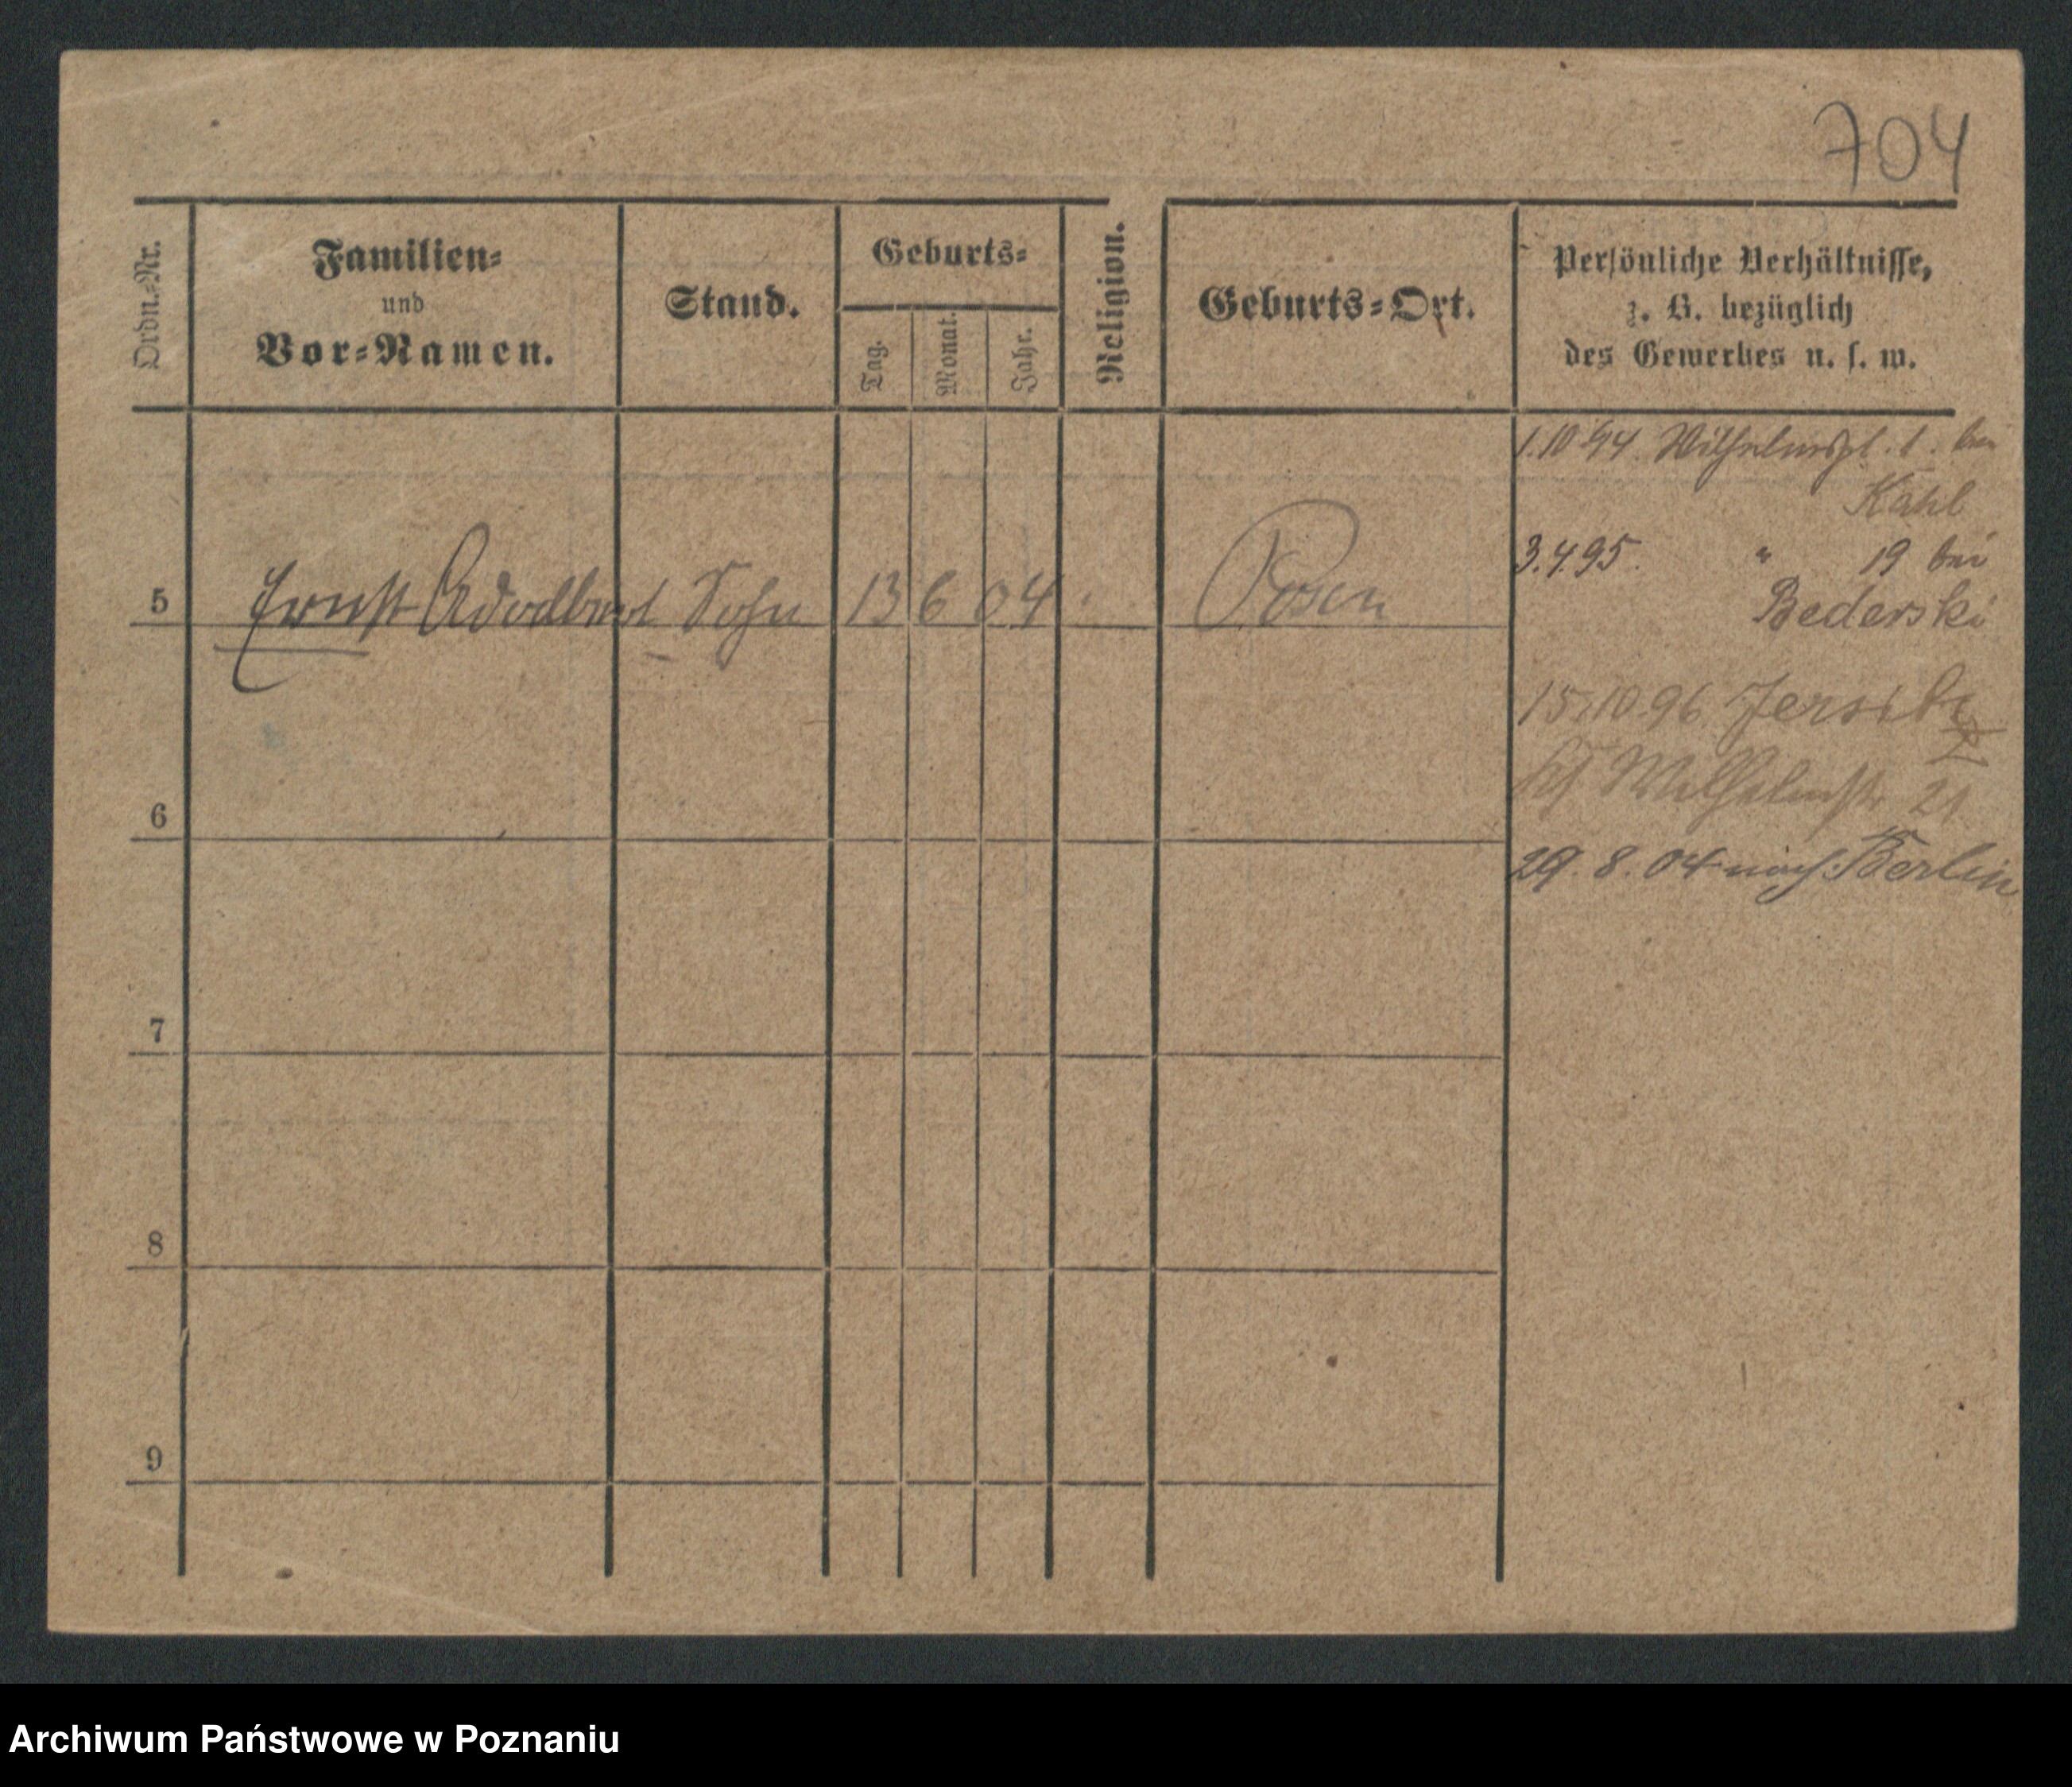 704
Ordn.-Nr.
Familien-
und
Vor-Namen.
Stand.
Geburts-
Tag.
Monat.
Jahr.
Religion.
Geburts-Ort.
Persönliche Verhältnisse,
z. B. bezüglich
des Gewerbes u. s. w.
1.10.94. Wilhelmspl. 1. bei
Kahl
3.4.95. " 19 bei
Bederski
5 Ernst Adalbert Sohn 13 6 04 Posen
15.10.96. Jersitz
Wilhelmstr 21
6
29.8.04 nach Berlin
7
8
9
Archiwum Państwowe w Poznaniu